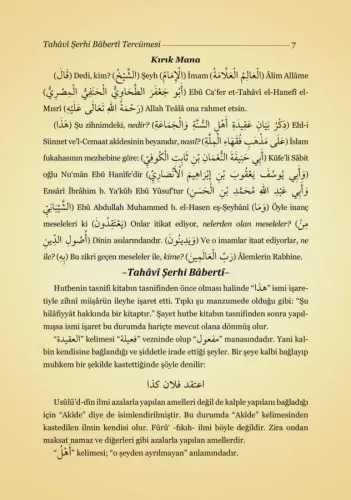 Tahâvî Şerhi Bâbertî Tercümesi 7
Kırık Mana
(قَالَ) Dedi, kim? (الشَّيْخُ) Şeyh (الْإِمَامُ) İmam (الْعَالِمُ الْعَلَّامَةُ) Âlim Allâme
(أَبُو جَعْفَرٍ الطَّحَاوِيُّ الْحَنَفِيُّ الْمِصْرِيُّ) Ebû Ca'fer et-Tahâvî el-Hanefî el-
Mısrî (رَحْمَةُ اللهِ تَعَالَى عَلَيْهِ) Allah Teâlâ ona rahmet etsin.
(هَذَا) Şu zihnimdeki, nedir? (ذِكْرُ بَيَانِ عَقِيدَةِ أَهْلِ السُّنَّةِ وَالْجَمَاعَةِ) Ehl-i
Sünnet ve'l-Cemaat akidesinin beyanıdır, nasıl? (عَلَى مَذْهَبِ فُقَهَاءِ الْمِلَّةِ) İslam
fukahasının mezhebine göre: (أَبِي حَنِيفَةَ النُّعْمَانِ بْنِ ثَابِتٍ الْكُوفِيِّ) Kûfe'li Sâbit
oğlu Nu'mân Ebû Hanîfe'dir (وَأَبِي يُوسُفَ يَعْقُوبَ بْنِ إِبْرَاهِيمَ الْأَنْصَارِيِّ)
Ensârî İbrâhim b. Ya'kûb Ebû Yûsuf'tur (وَأَبِي عَبْدِ اللهِ مُحَمَّدِ بْنِ الْحَسَنِ
الشَّيْبَانِيِّ) Ebû Abdullah Muhammed b. el-Hasen eş-Şeybânî (وَمَا) Öyle inanç
meseleleri ki (يَعْتَقِدُونَ) Onlar itikat ediyor, nelerden olan meseleler? (مِنْ
أُصُولِ الدِّينِ) Dinin asılarındandır. (وَيَدِينُونَ) Ve o imamlar itaat ediyorlar, ne
ile? (بِهِ) Bu zikri geçen meseleler ile, kime? (رَبَّ الْعَالَمِينَ) Âlemlerin Rabbine.
–Tahâvî Şerhi Bâbertî–
Hutbenin tasnifi kitabın tasnifinden önce olması halinde "هذا" ismi işare-
tiyle zihnî müşârün ileyhe işaret etti. Tıpkı şu manzumede olduğu gibi: "Şu
hilâfiyyât hakkında bir kitaptır." Şayet hutbe kitabın tasnifinden sonra yapıl-
mışsa ismi işaret bu durumda hariçte mevcut olana dönmüş olur.
"العقيدة" kelimesi "فعيلة" vezninde olup "مفعول" manasındadır. Yani kal-
bin kendisine bağlandığı ve şiddetle irade ettiği şeyler. Bir şeye kalbi bağlayıp
muhkem bir şekilde kastettiğinde şöyle denilir:
اعتقد فلان كذا
Usûlü'd-dîn ilmi azalarla yapılan amelleri değil de kalple yapılanı bağladığı
için "Akide" diye de isimlendirilmiştir. Bu durumda "Akide" kelimesinden
kastedilen ilmin kendisi olur. Fürû' -fıkıh- ilmi böyle değildir. Zira ondan
maksat namaz ve diğerleri gibi azalarla yapılan amellerdir.
"أَهْلُ" kelimesi; "o şeyden ayrılmayan" anlamındadır.